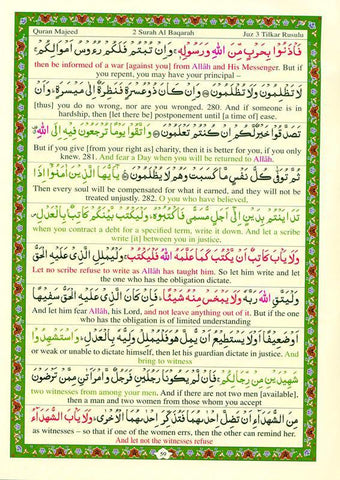 Quran Majeed 2 Surah Al Baqarah Juz 3 Tilkar Rusulu
فَأْذَنُوا بِحَرْبٍ مِّنَ اللّٰهِ وَرَسُولِهٖ ۚ وَإِنْ تُبْتُمْ فَلَكُمْ رُءُوسُ أَمْوَالِكُمْ ۚ
then be informed of a war [against you] from Allāh and His Messenger. But if you repent, you may have your principal –
لَا تَظْلِمُونَ وَلَا تُظْلَمُونَ ۝ وَإِنْ كَانَ ذُو عُسْرَةٍ فَنَظِرَةٌ إِلٰى مَيْسَرَةٍ ۚ وَأَنْ
[thus] you do no wrong, nor are you wronged. 280. And if someone is in hardship, then [let there be] postponement until [a time of] ease.
تَصَدَّقُوا خَيْرٌ لَّكُمْ إِنْ كُنْتُمْ تَعْلَمُونَ ۝ وَاتَّقُوا يَوْمًا تُرْجَعُونَ فِيهِ إِلَى اللّٰهِ ۗ
But if you give [from your right as] charity, then it is better for you, if you only knew. 281. And fear a Day when you will be returned to Allāh.
ثُمَّ تُوَفّٰى كُلُّ نَفْسٍ مَّا كَسَبَتْ وَهُمْ لَا يُظْلَمُونَ ۝ يٰٓأَيُّهَا الَّذِينَ اٰمَنُوٓا إِذَا
Then every soul will be compensated for what it earned, and they will not be treated unjustly. 282. O you who have believed,
تَدَايَنْتُمْ بِدَيْنٍ إِلٰٓى أَجَلٍ مُّسَمًّى فَاكْتُبُوهُ ۚ وَلْيَكْتُبْ بَّيْنَكُمْ كَاتِبٌ بِالْعَدْلِ ۚ
when you contract a debt for a specified term, write it down. And let a scribe write [it] between you in justice.
وَلَا يَأْبَ كَاتِبٌ أَنْ يَّكْتُبَ كَمَا عَلَّمَهُ اللّٰهُ فَلْيَكْتُبْ ۚ وَلْيُمْلِلِ الَّذِي عَلَيْهِ الْحَقُّ
Let no scribe refuse to write as Allāh has taught him. So let him write and let the one who has the obligation dictate.
وَلْيَتَّقِ اللّٰهَ رَبَّهٗ وَلَا يَبْخَسْ مِنْهُ شَيْئًا ۚ فَإِنْ كَانَ الَّذِي عَلَيْهِ الْحَقُّ سَفِيهًا
And let him fear Allāh, his Lord, and not leave anything out of it. But if the one who has the obligation is of limited understanding
أَوْ ضَعِيفًا أَوْ لَا يَسْتَطِيعُ أَنْ يُّمِلَّ هُوَ فَلْيُمْلِلْ وَلِيُّهٗ بِالْعَدْلِ ۚ وَاسْتَشْهِدُوا
or weak or unable to dictate himself, then let his guardian dictate in justice. And bring to witness
شَهِيدَيْنِ مِنْ رِّجَالِكُمْ ۚ فَإِنْ لَّمْ يَكُونَا رَجُلَيْنِ فَرَجُلٌ وَّامْرَأَتٰنِ مِمَّنْ تَرْضَوْنَ
two witnesses from among your men. And if there are not two men [available], then a man and two women from those whom you accept
مِنَ الشُّهَدَآءِ أَنْ تَضِلَّ إِحْدٰىهُمَا فَتُذَكِّرَ إِحْدٰىهُمَا الْأُخْرٰى ۚ وَلَا يَأْبَ الشُّهَدَآءُ
as witnesses – so that if one of the women errs, then the other can remind her. And let not the witnesses refuse
59